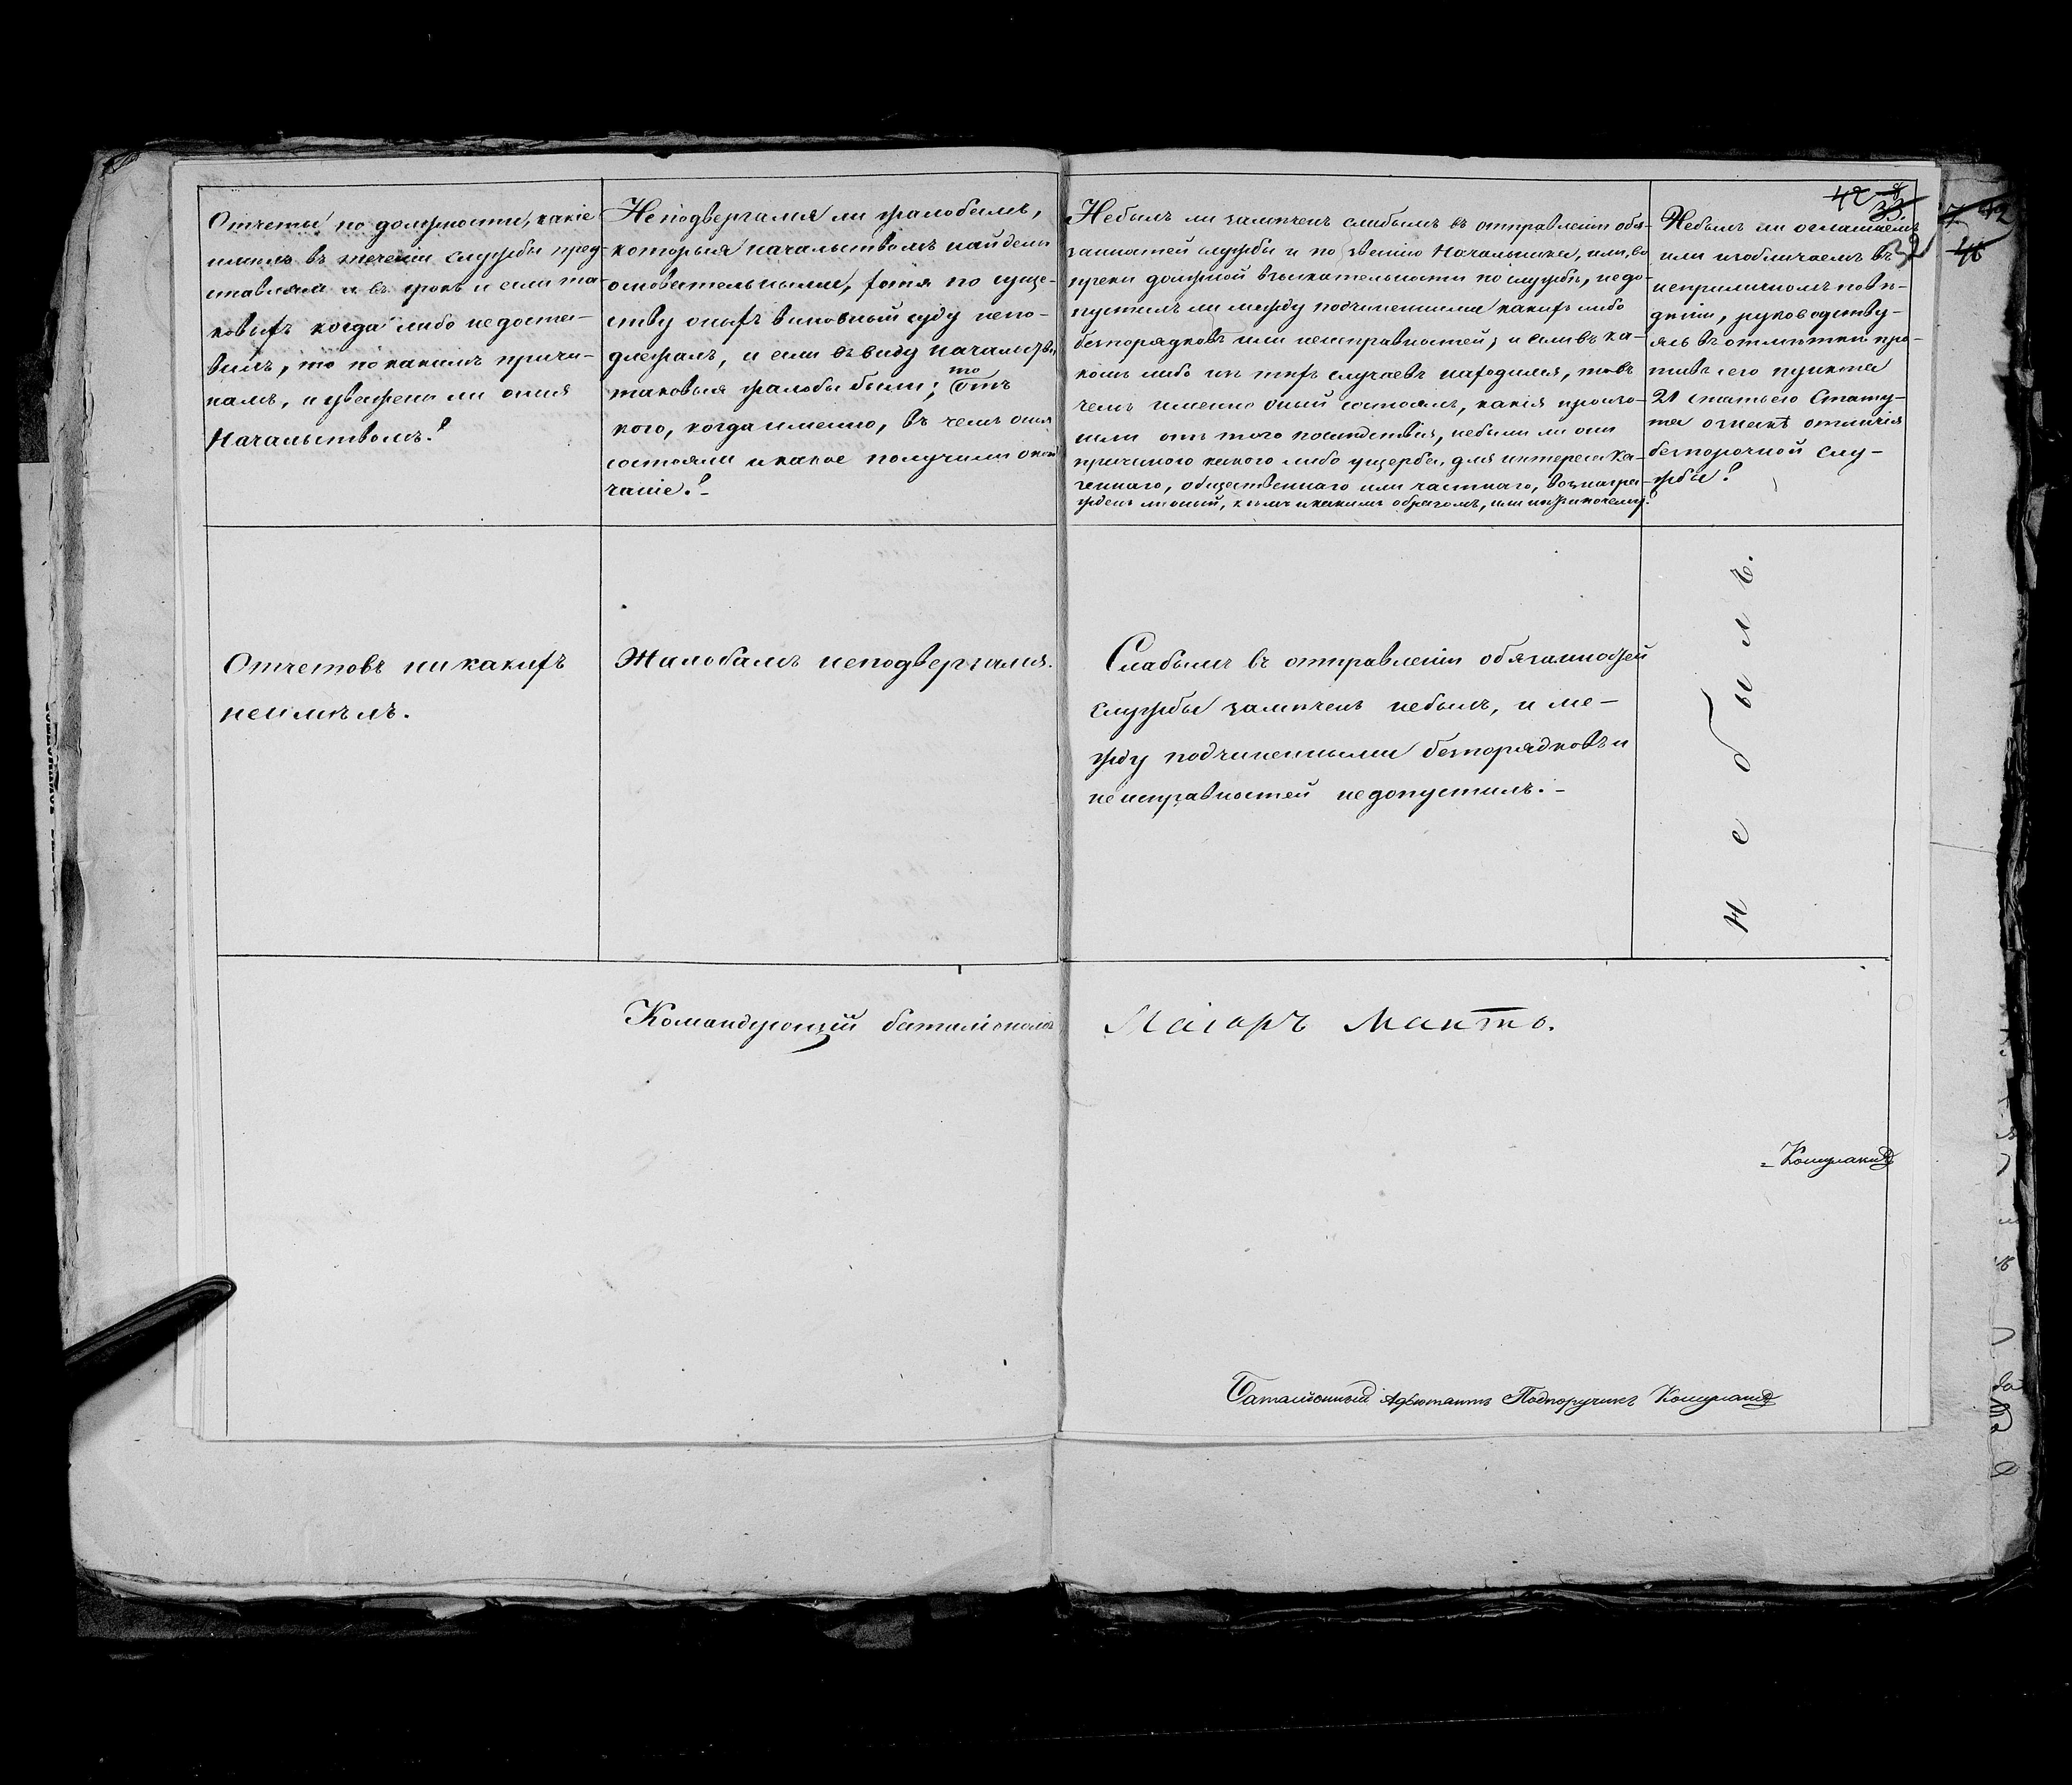 Отчеты по должности, какіе
имелъ въ теченіи службы пред-
ставлялъ и въ срокъ и если та
ковыхъ когда либо недоста-
вилъ, то по какимъ причи-
намъ, и уважены ли оныя
Начальствомъ?
Неподвергался ли жалобамъ,
которыя начальствомъ найдены
основательными, хотя по суще-
ству оныхъ виновный суду непо-
длежалъ, и если въ виду начальства
таковыя жалобы были; то отъ
кого, когда именно, въ чемъ оныя
состояли и какое получили окон
чаніе?-
Небылъ ли замѣченъ слабымъ въ отправленіи обя-
занностей службы и по званію Начальника, или, во
преки должной взыскательности по службѣ, недо-
пустилъ ли между подчиненными какихъ либо
безпорядковъ или неисправностей; и если въ ка-
комъ либо изъ тѣхъ случаевъ находился, то въ
чемъ именно оный состоялъ, какія произо-
шли отъ того послѣдствія, небыли ли они
причиною какого либо ущерба, для интереса Ка-
зеннаго, общественнаго или частнаго, вознагра-
жденъ ли оный, кѣмъ и какимъ образомъ, или нѣтъ и почему?
42 4
33.
32
Небылъ ли оглашаемъ
или изобличаемъ въ
неприличномъ пове-
деніи, руководству-
ясь въ отмѣтки про-
тивъ сего пункта
21 статьею Стату-
та о знакѣ отличія
безпорочной слу-
жбы?
7 42
46
Отчетовъ ни какихъ
неимѣлъ.
Жалобамъ неподвергался.
Слабымъ въ отправленіи обязанностей
службы замѣченъ небылъ, и ме-
жду подчиненными безпорядковъ и
неисправностей недопустилъ.-
Небылъ.
Командующій баталіономъ
Маіоръ Мантo.
Баталіонный Адъютантъ Подпоручикъ